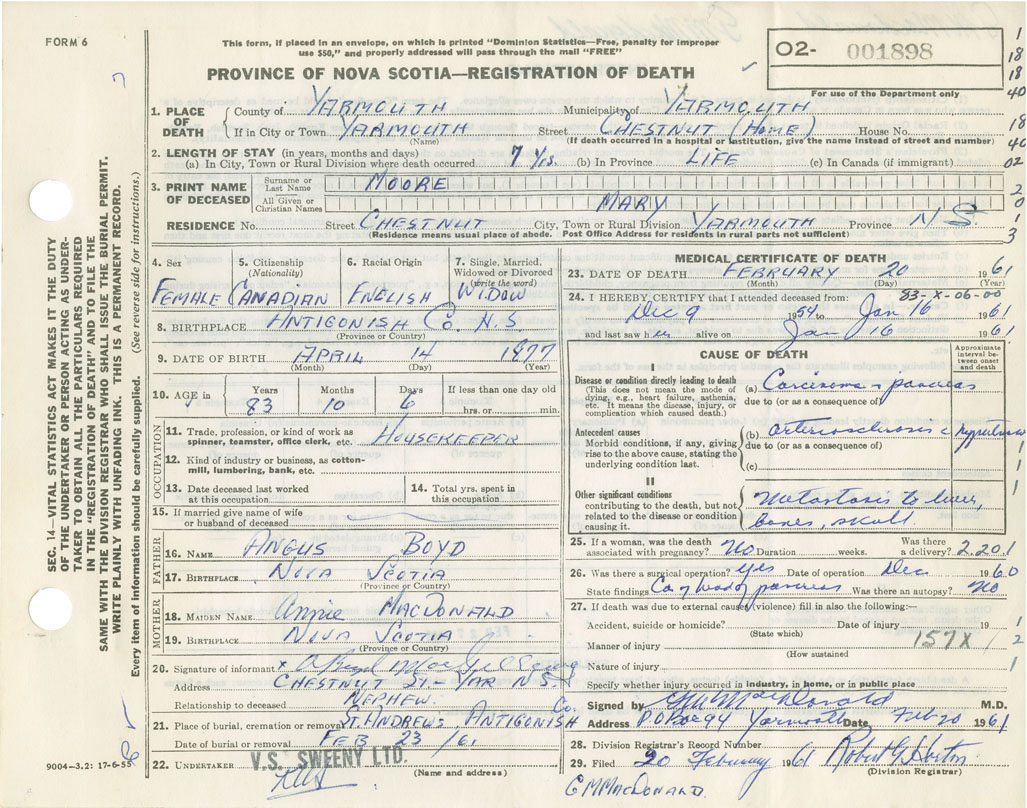 FORM 6
This form, if placed in an envelope, on which is printed "Dominion Statistics—Free, penalty for improper
use $50," and properly addressed will pass through the mail "FREE"
PROVINCE OF NOVA SCOTIA—REGISTRATION OF DEATH
O2- 001898
For use of the Department only
1. PLACE OF DEATH
County of YARMOUTH Municipality of YARMOUTH
If in City or Town YARMOUTH Street CHESTNUT (HOME) House No.
(Name) (If death occurred in a hospital or institution, give the name instead of street and number)
2. LENGTH OF STAY (in years, months and days)
(a) In City, Town or Rural Division where death occurred 7 Yrs. (b) In Province LIFE (c) In Canada (if immigrant)
3. PRINT NAME OF DECEASED
Surname or Last Name MOORE
All Given or Christian Names MARY
RESIDENCE No. Street CHESTNUT City, Town or Rural Division YARMOUTH Province N S.
(Residence means usual place of abode. Post Office Address for residents in rural parts not sufficient)
4. Sex 5. Citizenship (Nationality) 6. Racial Origin 7. Single, Married, Widowed or Divorced (write the word)
FEMALE CANADIAN ENGLISH WIDOW
8. BIRTHPLACE ANTIGONISH Co. N.S.
(Province or Country)
9. DATE OF BIRTH APRIL 14 1877
(Month) (Day) (Year)
10. AGE in Years Months Days If less than one day old
83 10 6 hrs. or min.
OCCUPATION
11. Trade, profession, or kind of work as spinner, teamster, office clerk, etc. HOUSEKEEPER
12. Kind of industry or business, as cotton-mill, lumbering, bank, etc.
13. Date deceased last worked at this occupation
14. Total yrs. spent in this occupation
15. If married give name of wife or husband of deceased
FATHER
16. NAME ANGUS BOYD
17. BIRTHPLACE NOVA SCOTIA
(Province or Country)
MOTHER
18. MAIDEN NAME Annie MACDONALD
19. BIRTHPLACE NOVA SCOTIA
(Province or Country)
20. Signature of informant x
Address CHESTNUT ST - YAR N.S.
Relationship to deceased NEPHEW
21. Place of burial, cremation or removal ST. ANDREWS ANTIGONISH Co.
Date of burial or removal FEB 23 /61
22. UNDERTAKER V.S. SWEENY LTD.
(Name and address)
MEDICAL CERTIFICATE OF DEATH
23. DATE OF DEATH FEBRUARY 20 1961
(Month) (Day) (Year)
83-X-06-00
24. I HEREBY CERTIFY that I attended deceased from:
Dec 9 1954 to Jan 16 1961
and last saw her alive on Jan 16 1961
CAUSE OF DEATH
Approximate interval between onset and death
I
Disease or condition directly leading to death
(This does not mean the mode of dying, e.g., heart failure, asthenia, etc. It means the disease, injury, or complication which caused death.)
(a) Carcinoma of pancreas
due to (or as a consequence of)
Antecedent causes
Morbid conditions, if any, giving rise to the above cause, stating the underlying condition last.
(b) arteriosclerosis c hypertension
due to (or as a consequence of)
(c)
II
Other significant conditions
contributing to the death, but not related to the disease or condition causing it.
Metastasis to liver,
bones, skull.
25. If a woman, was the death associated with pregnancy? No Duration weeks. Was there a delivery? 2.20.1
26. Was there a surgical operation? yes Date of operation Dec 1960
State findings Ca of body of pancreas Was there an autopsy? No
27. If death was due to external causes (violence) fill in also the following:—
Accident, suicide or homicide? Date of injury 19
(State which)
Manner of injury 157X
(How sustained)
Nature of injury
Specify whether injury occurred in industry, in home, or in public place
Signed by GM MacDonald M.D.
Address P.O Box 94 Yarmouth Date Feb 20 1961
28. Division Registrar's Record Number
29. Filed 20 February 1961 Robert G. Horton
(Division Registrar)
G M MACDONALD.
SEC. 14—VITAL STATISTICS ACT MAKES IT THE DUTY
OF THE UNDERTAKER OR PERSON ACTING AS UNDER-
TAKER TO OBTAIN ALL THE PARTICULARS REQUIRED
IN THE "REGISTRATION OF DEATH" AND TO FILE THE
SAME WITH THE DIVISION REGISTRAR WHO SHALL ISSUE THE BURIAL PERMIT.
WRITE PLAINLY WITH UNFADING INK. THIS IS A PERMANENT RECORD.
Every item of information should be carefully supplied. (See reverse side for instructions.)
9004-3.2: 17-6-55
1
18
18
40
18
40
02
2
0
1
3
1
1
1
1
2
1